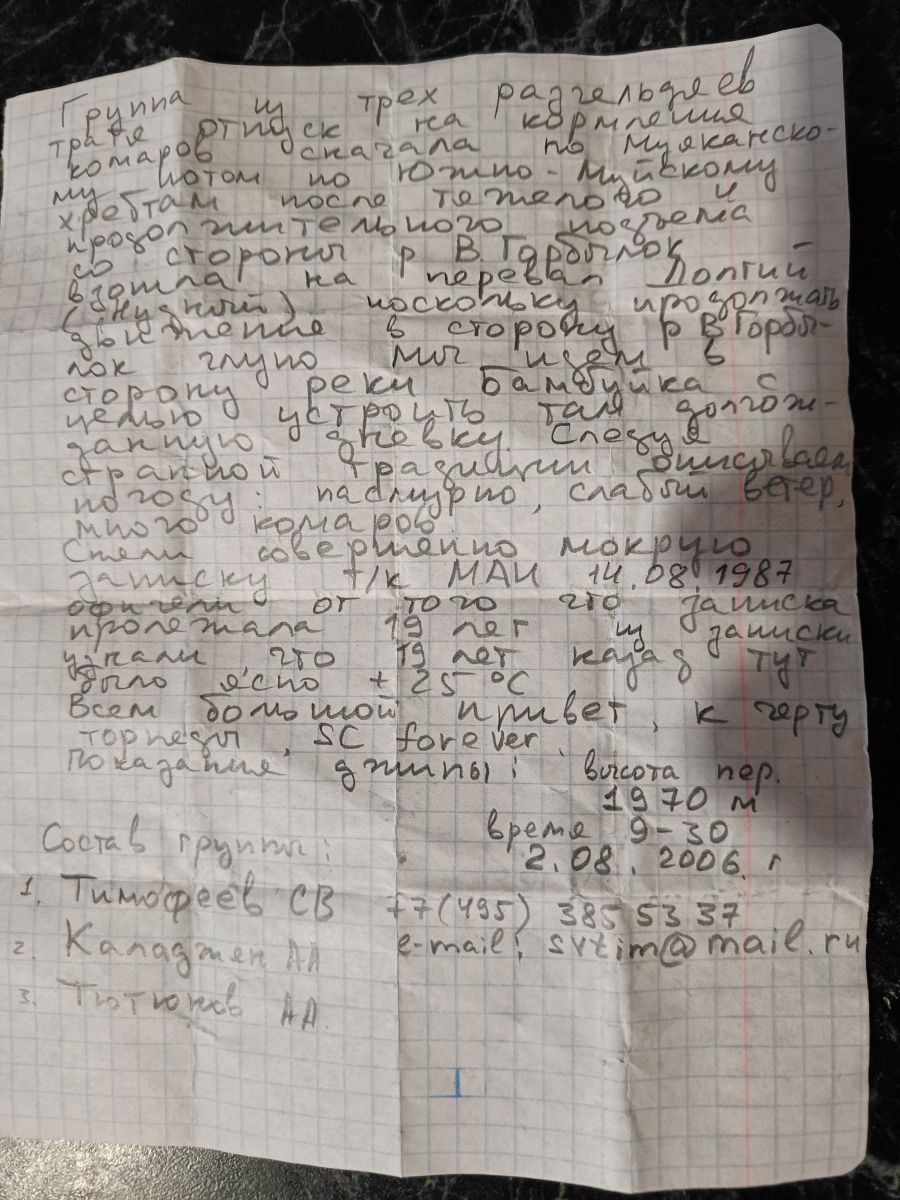 Группа из трех раздельдяев
тратя отпуск на кормления
комаров сначала по Муяканско-
му потом по Южно-Муйскому
хребтам после тяжелого и
продолжительного подъема
со стороны р В.Горбылок
взошла на перевал Долгий
(Нудный) поскольку продолжать
движение в сторону р В Горбы-
лок глупо мы идем в
сторону реки Бамбуйка с
целью устроить там долгож-
данную дневку. Следуя
странной традиции описываем
погоду: пасмурно, слабый ветер,
много комаров
Сняли совершенно мокрую
записку т/к МАИ 14.08 1987
офигели от того что записка
пролежала 19 лет из записки
узнали, что 19 лет назад тут
было ясно + 25 °C
Всем большой привет, к черту
торпеды, SC forever,
Показания джипы: высота пер.
1970 м
время 9-30
2.08. 2006. г
Состав группы:
1. Тимофеев СВ +7(495) 385 53 37
e-mail: svtim@mail.ru
2. Каладжян АА
3. Тютюнов АА.